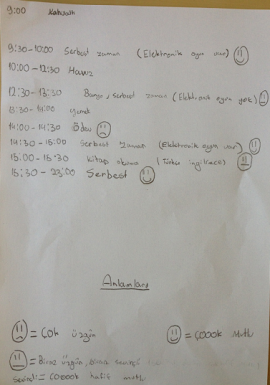 9:00 Kahvaltı
9:30-10:00 Serbest zaman (Elektronik oyun var)
10:00-12:30 Havuz
12:30-13:30 Banyo, serbest zaman (Elektronik oyun yok)
13:30-14:00 Yemek
14:00-14:30 Ödev
14:30-15:00 Serbest zaman (elektronik oyun var)
15:00-15:30 kitap okuma (Türkçe ingilizce)
15:30-23:00 Serbest
Anlamları
= Çok üzgün
= Çooook Mutlu
= Biraz üzgün, biraz
= Çooook